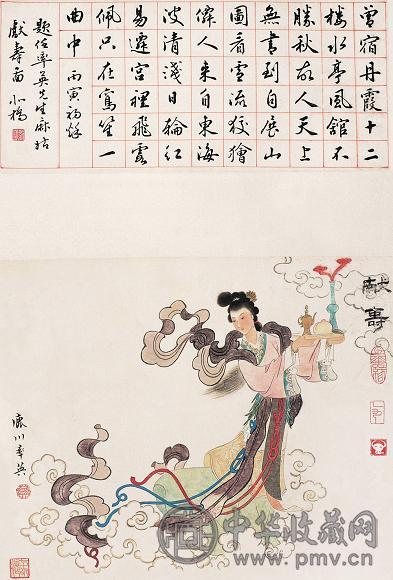 曾宿丹霞十二
樓水亭風舘不
勝秋故人天上
無書到自展山
圖看雲流狡獪
人来自東海
波清淺日輪紅
易遷宮裡飛雲
佩只在鸞笙一
曲中 丙寅初
題任率英先生麻姑
獻壽圖
獻壽
川率英
中华收藏网
www.pmv.cn